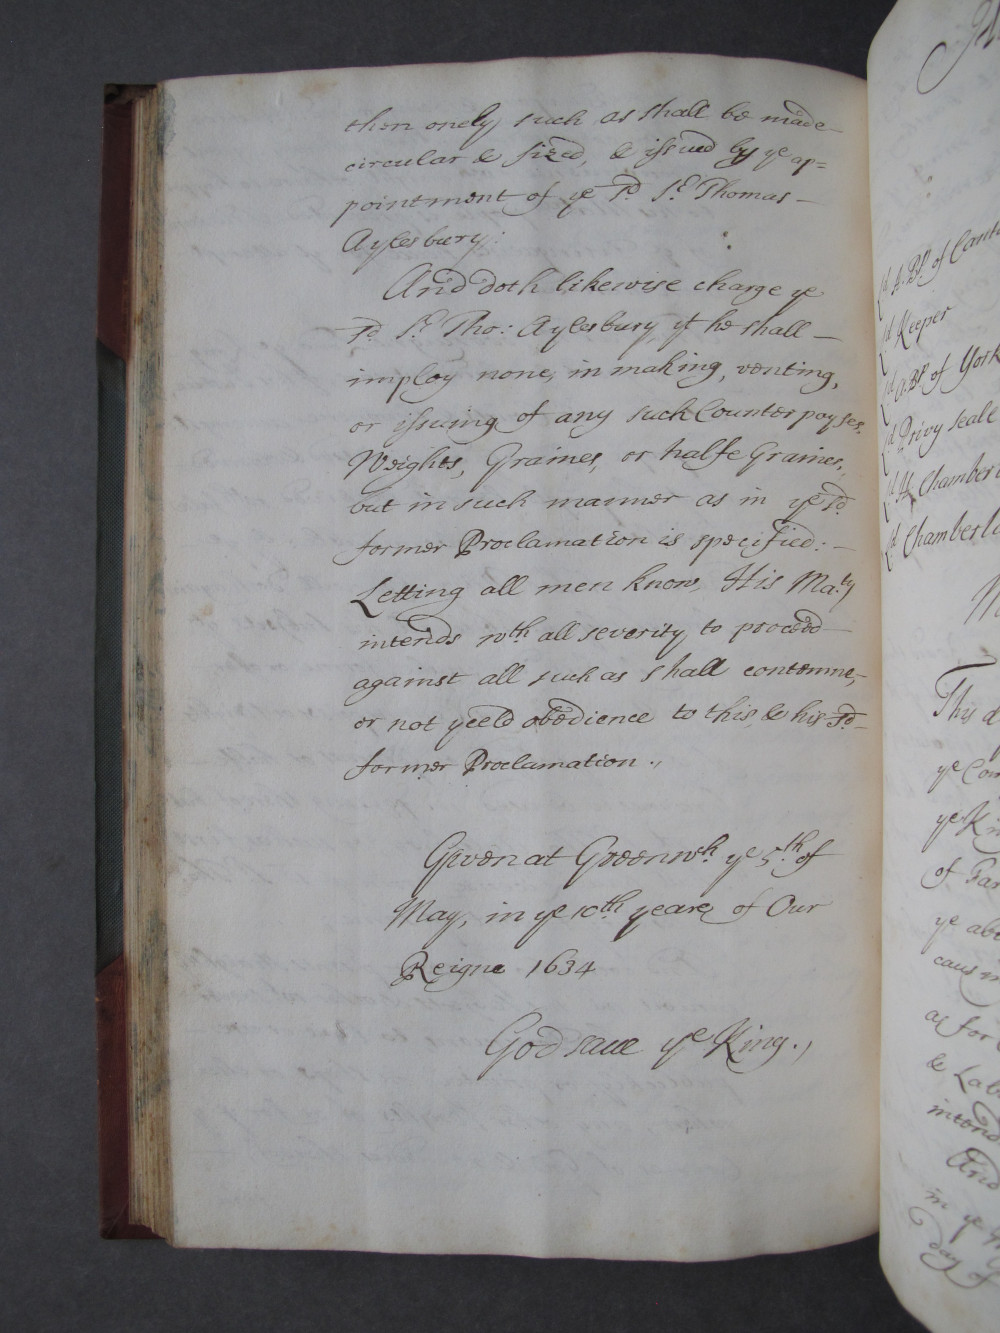 then onely such as shall be made
circular & sized, & issued by ye ap=
pointment of ye sd Sr Thomas
Aylesbury;
And doth likewise charge ye
sd Sr Tho: Aylesbury yt he shall
imploy none, in making, venting,
or issuing of any such Counterpayses,
Weights, Graines, or halfe Graines,
but in such manner as in ye sd
former Proclamation is specified:
Letting all men know, His Maty
intends wth all severity to proceed
against all such as shall contemne,
or not yeeld obedience to this & his sd
former Proclamation.
Given at Greenwch ye 5th of
May, in ye 10th yeare of Our
Reigne 1634
God save ye King.
Ld A. Bp. of Cant
Ld Keeper
Ld A. Bp. of York
Ld Privy seale
Ld H. Chamber
Ld Chamberl
This d
ye Cou
ye Kn
of
ye abo
caus
as for
& Lab
intend
And
in ye
day of